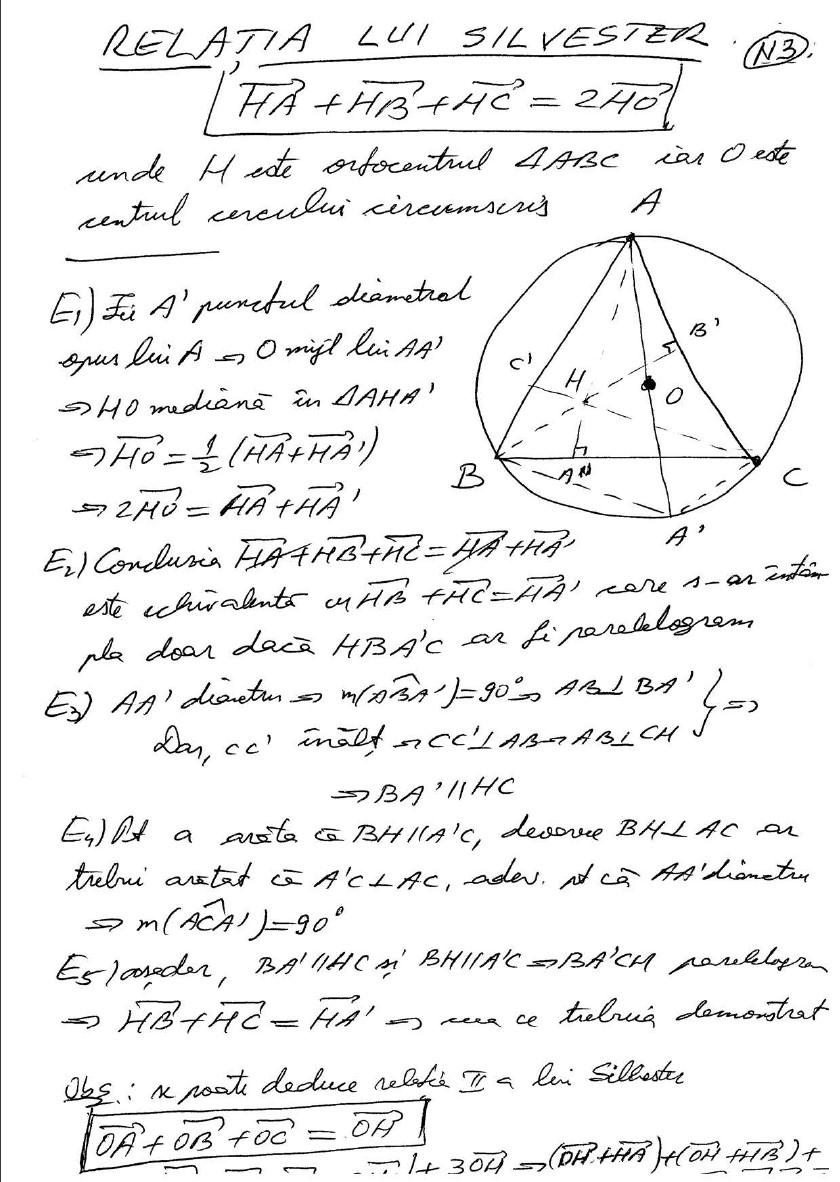 RELAȚIA LUI SILVESTER N3
HA + HB + HC = 2HO
unde H este ortocentrul ΔABC iar O este
centrul cercului circumscris
A
E1) Fie A' punctul diametral
opus lui A => O mijl lui AA'
=> HO mediană în ΔAHA'
=> HO = 1/2 (HA + HA')
=> 2HO = HA + HA'
B'
C'
H
O
B
A"
C
A'
E2) Concluzia HA + HB + HC = HA + HA'
este echivalentă cu HB + HC = HA' care s-ar întâm
pla doar dacă HBA'C ar fi paralelogram
E3) AA' diametru => m(ABA') = 90° => AB ⊥ BA' } =>
Dar, CC' înălț => CC' ⊥ AB => AB ⊥ CH
=> BA' || HC
E4) Pt a arăta că BH || A'C, deoarece BH ⊥ AC ar
trebui arătat că A'C ⊥ AC, adev. pt că AA' diametru
=> m(ACA') = 90°
E5) așadar, BA' || HC și BH || A'C => BA'CH paralelogram
=> HB + HC = HA' => ceea ce trebuia demonstrat
Obs.: se poate deduce relația II a lui Silvester
OA + OB + OC = OH
+ 3OH => (OH + HA) + (OH + HB) +